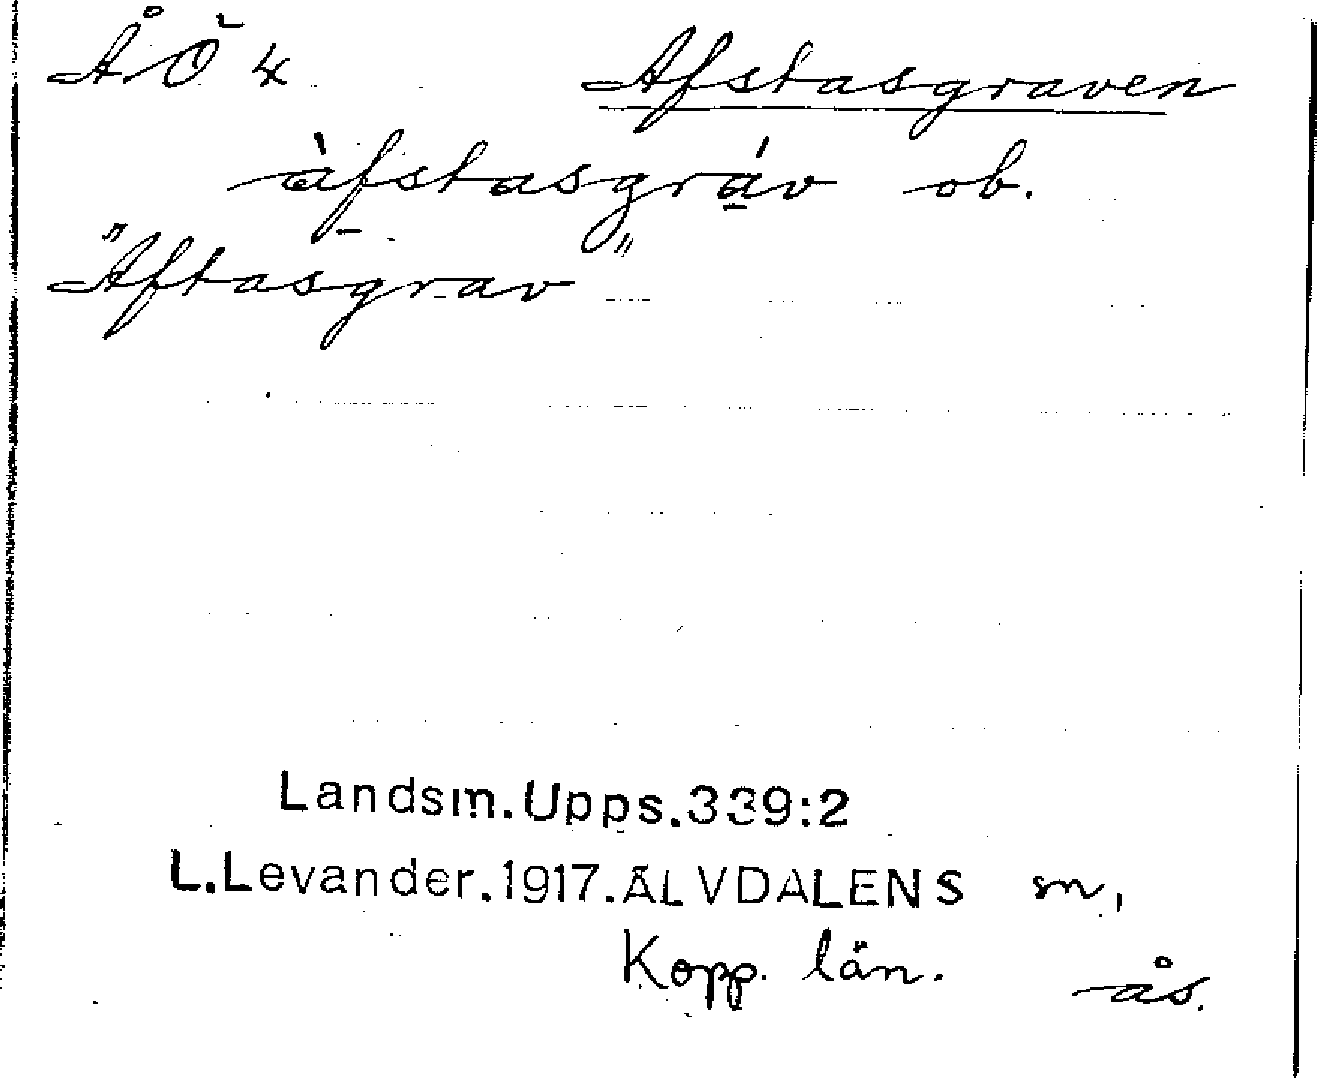 ÅÖ 4 Afstasgraven
àfstasgráv ob.
"Aftasgrav"
Landsm.Upps.339:2
L.Levander.1917.ÄLVDALENS sn,
Kopp. län. ås.